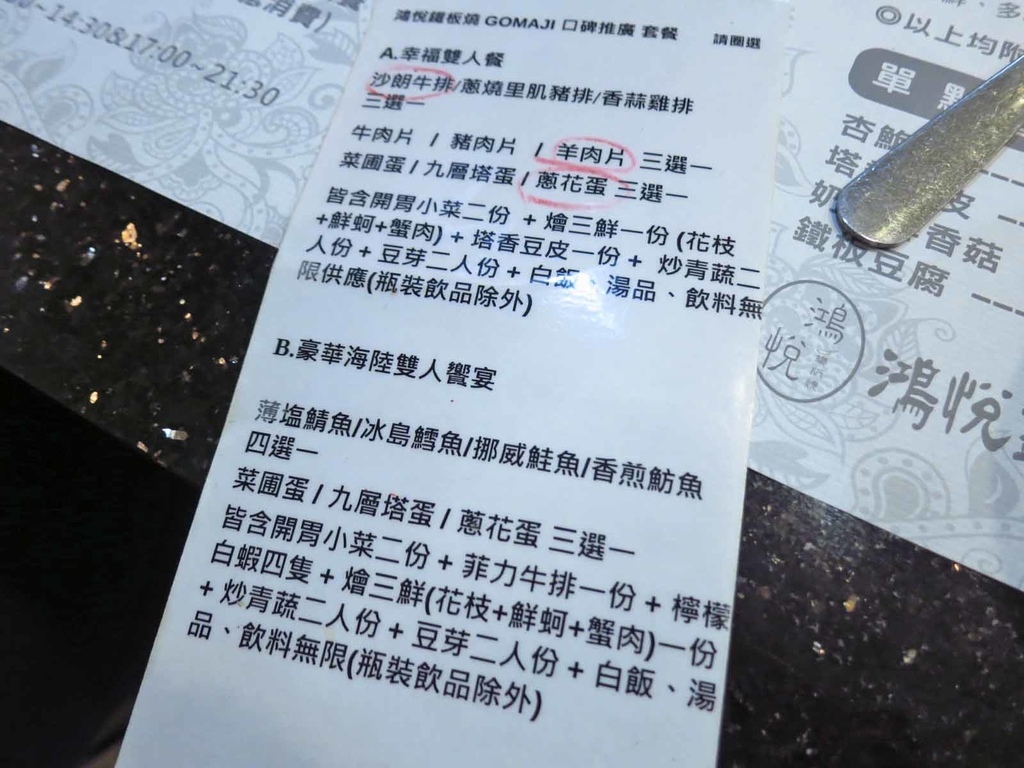 鴻悅鐵板燒 GOMAJI 口碑推廣 套餐 請圈選
A.幸福雙人餐
沙朗牛排/蔥燒里肌豬排/香蒜雞排
三選一
牛肉片 / 豬肉片 / 羊肉片 三選一
菜圃蛋 / 九層塔蛋 / 蔥花蛋 三選一
皆含開胃小菜二份 + 燴三鮮一份 (花枝
+鮮蚵+蟹肉) + 塔香豆皮一份 + 炒青蔬二
人份 + 豆芽二人份 + 白飯、湯品、飲料無
限供應(瓶裝飲品除外)
B.豪華海陸雙人饗宴
薄塩鯖魚/冰島鱈魚/挪威鮭魚/香煎魴魚
四選一
菜圃蛋 / 九層塔蛋 / 蔥花蛋 三選一
皆含開胃小菜二份 + 菲力牛排一份 + 檸檬
白蝦四隻 + 燴三鮮(花枝+鮮蚵+蟹肉)一份
+ 炒青蔬二人份 + 豆芽二人份 + 白飯、湯
品、飲料無限(瓶裝飲品除外)
消費)
14:30&17:00~21:30
◎以上均附
單
杏鮑
塔
奶 香菇
鐵板豆腐
鴻悅
鴻悅